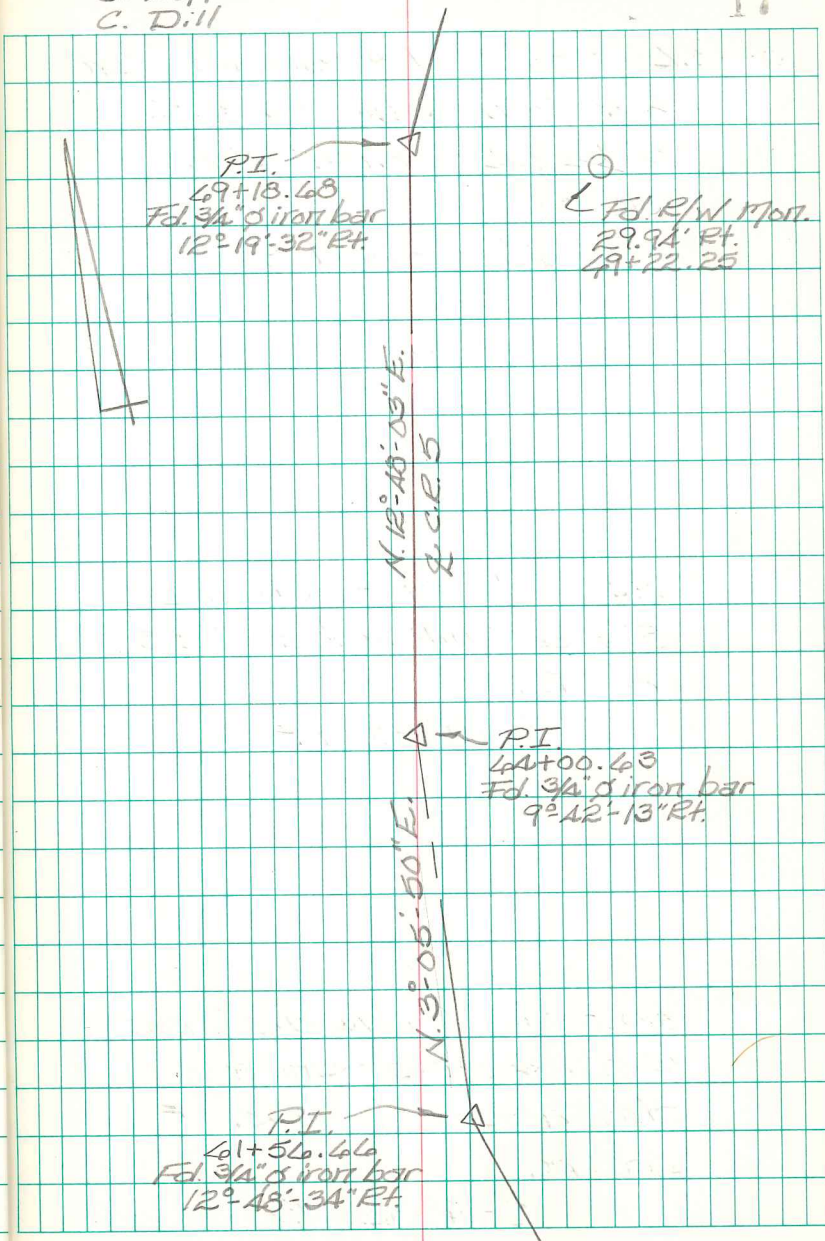 C. Dill
17
P.I.
49+18.68
Fd. 3/4" ø iron bar
12°-19'-32" Rt.
Fd. R/W Mon.
29.94' Rt.
49+22.25
N. 12°-48'-03" E.
℄ C.R. 5
P.I.
44+00.63
Fd. 3/4" ø iron bar
9°-42'-13" Rt.
N. 3°-05'-50" E.
P.I.
41+56.66
Fd. 3/4" ø iron bar
12°-48'-34" Rt.